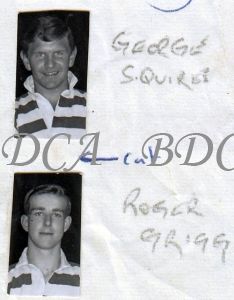 GEORGE
SQUIRES
DCA BDC
cut
ROGER
GRIGG